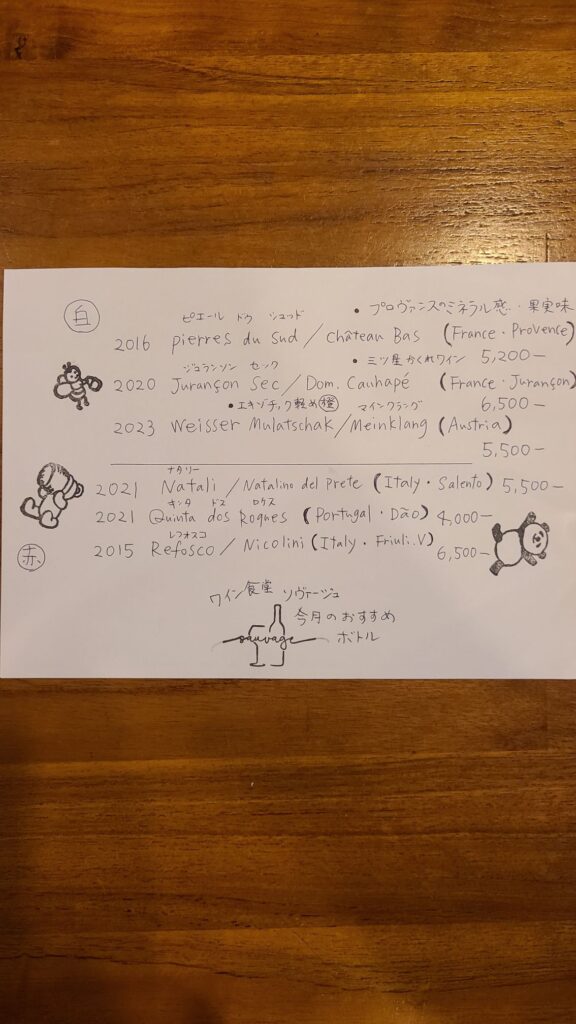 白
• プロヴァンスのミネラル感・果実味
ピエール ドゥ シュッド
2016 pierres du sud / château Bas (France・Provence)
• 三ツ星かくれワイン 5,200-
ジュランソン セック
2020 Jurançon Sec / Dom. Cauhapé (France・Jurançon)
• エキゾチック軽め 橙 マインクラング 6,500-
2023 Weisser Mulatschak / Meinklang (Austria)
5,500-
ナタリー
2021 Natali / Natalino del Prete (Italy・Salento) 5,500-
キンタ ドス ロケス
2021 Quinta dos Roques (Portugal・Dão) 4,000-
レフォスコ
2015 Refosco / Nicolini (Italy・Friuli.V) 6,500-
赤
ワイン食座 ソヴァージュ
今月のおすすめ
sauvage ボトル